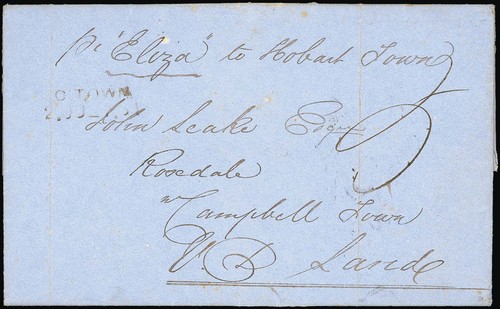 pr "Eliza" to Hobart Town
G. TOWN
John Leake Esqre
Rosedale
Campbell Town
V. D Land